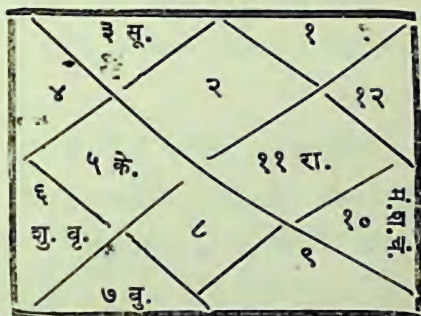 ३ सू.
१
४
२
१२
५ के.
११ रा.
६
शु. वृ.
८
१०
मं. श. चं.
९
७ बु.